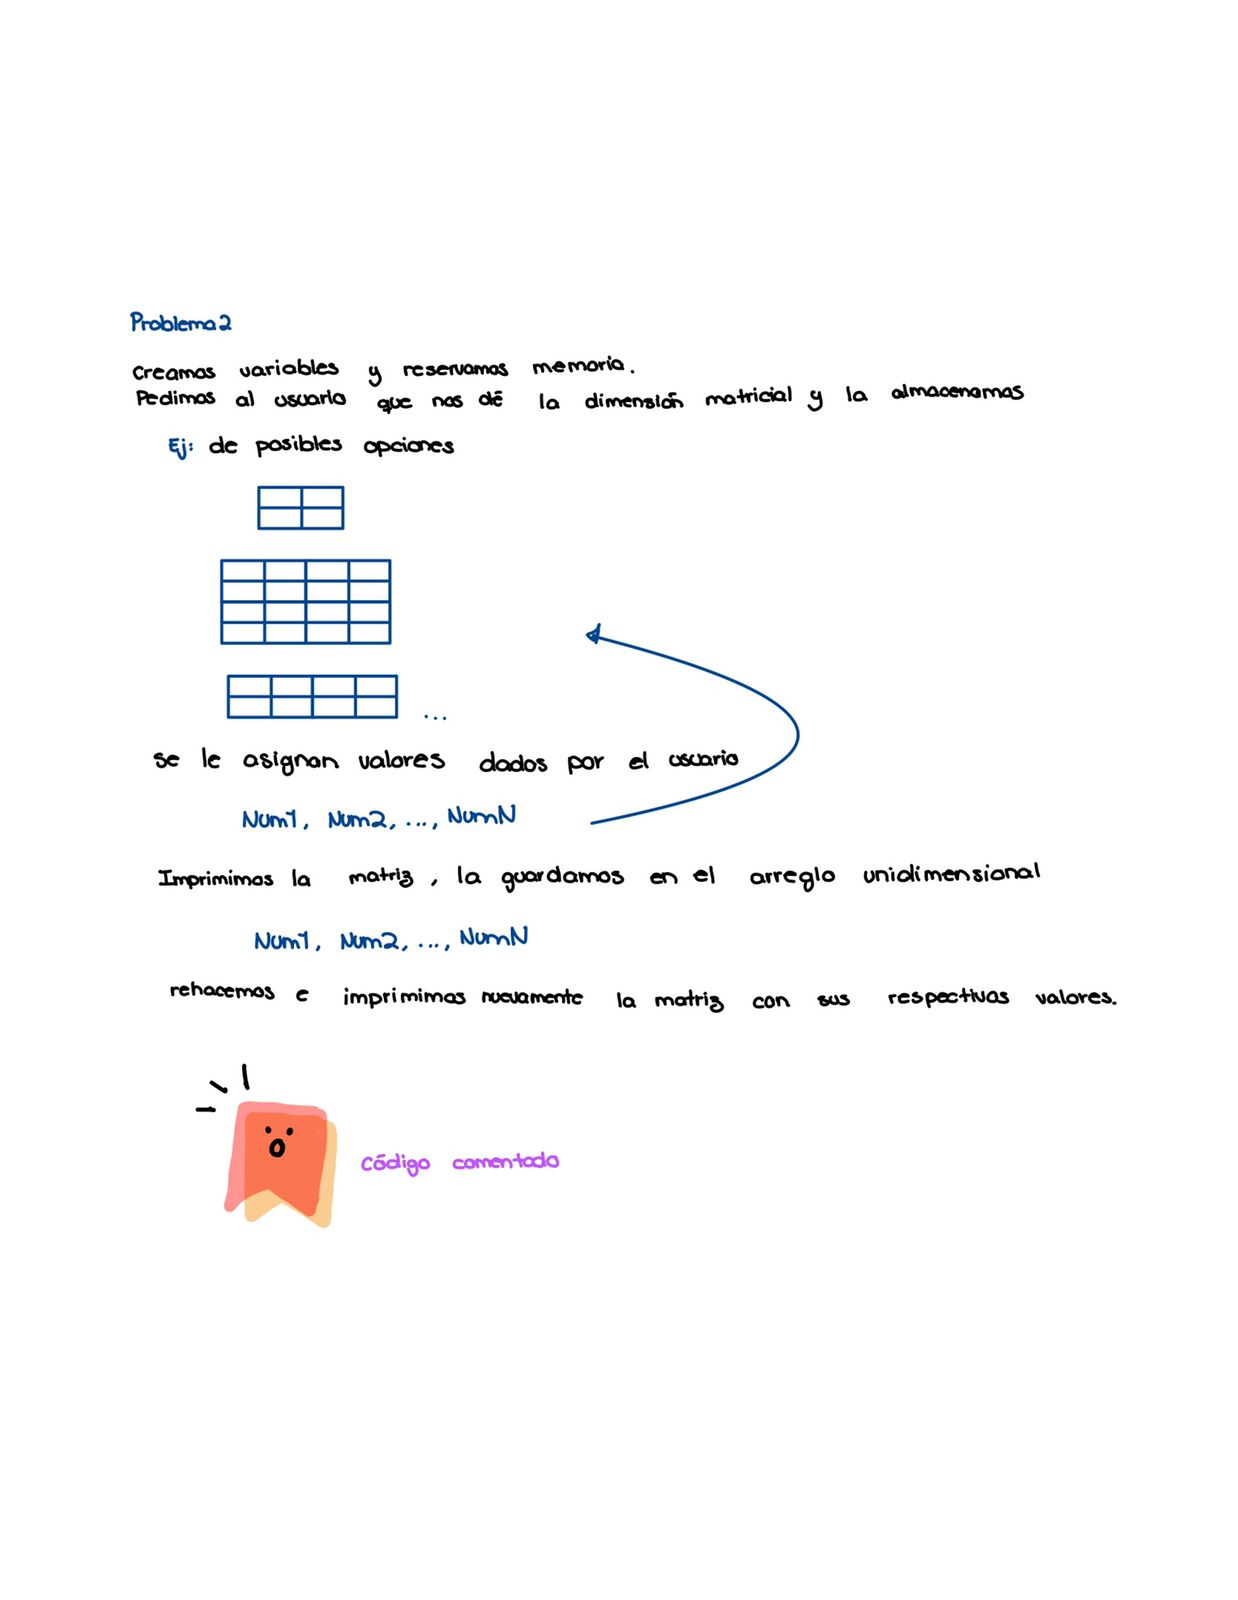 Problema 2
Creamos variables y reservamos memoria.
Pedimos al usuario que nos dé la dimensión matricial y la almacenamos
Ej: de posibles opciones
...
se le asignan valores dados por el usuario
Num1, Num2, ..., NumN
Imprimimos la matriz, la guardamos en el arreglo unidimensional
Num1, Num2, ..., NumN
rehacemos e imprimimos nuevamente la matriz con sus respectivos valores.
Código comentado